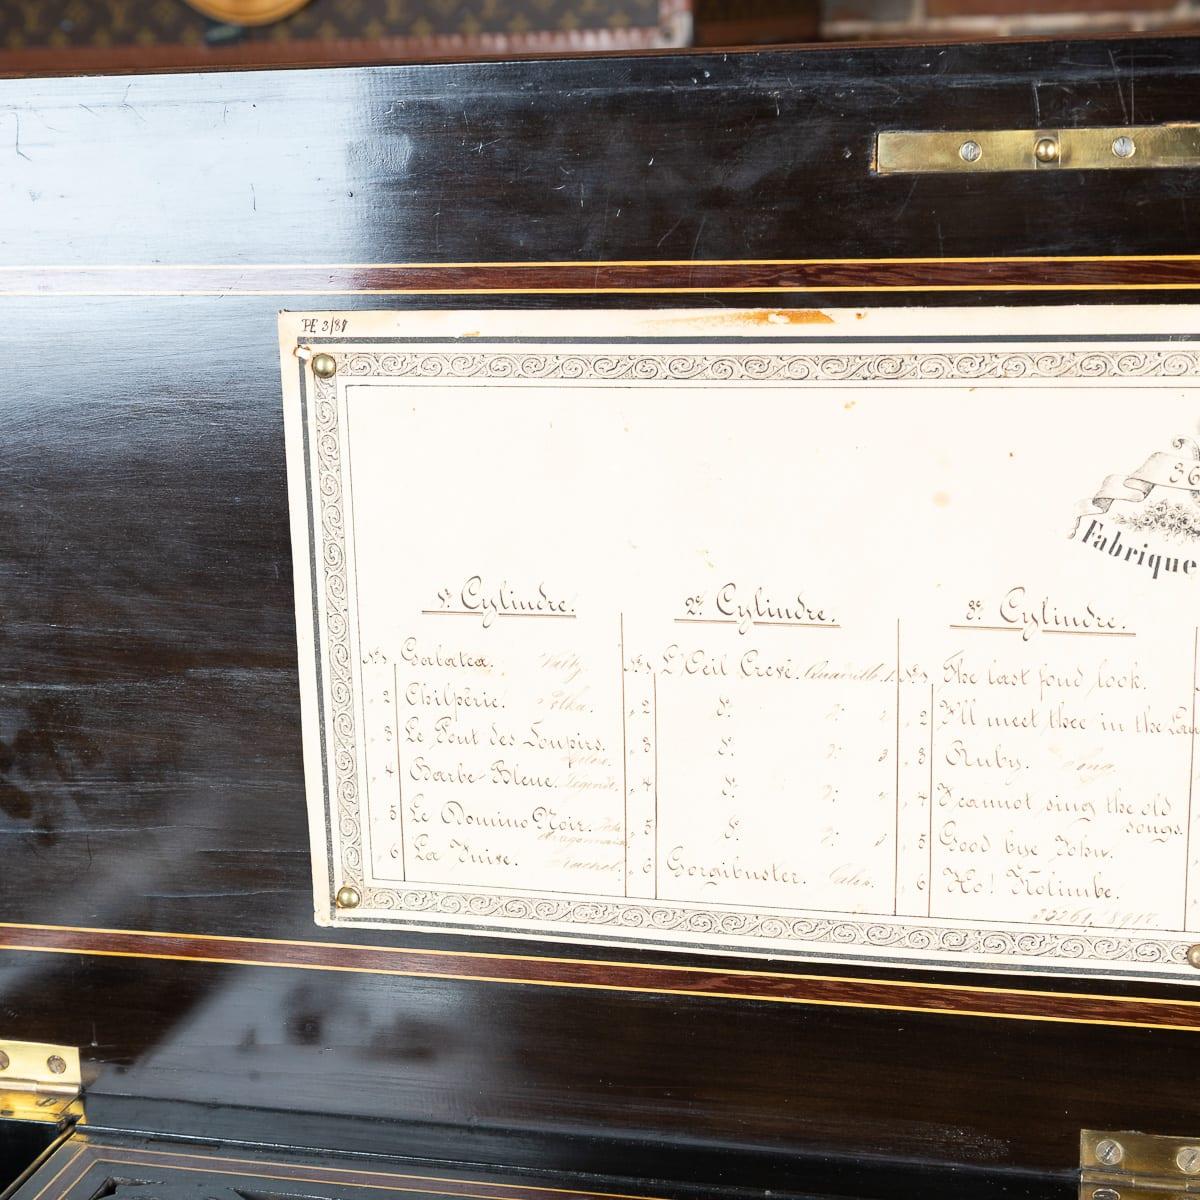 PE 3/87
36
Fabrique
1r. Cylindre.
No. 1 Galatea. Valtz.
" 2 Chilpèric. Polka.
" 3 Le Pont des Soupirs.
" 4 Barbe-Bleue. Légende.
" 5 Le Domino Noir.
Aragonnaise.
" 6 La Juive. Rachel.
2e. Cylindre.
No. 1 L'Oeil Crevé. Quadrille. 1.
" 2 do. do. 2
" 3 do. do. 3
" 4 do. do. 4
" 5 do. do. 5
" 6 Gorgibuster. Galop.
3e. Cylindre.
No. 1 The last fond look.
" 2 I'll meet thee in the
" 3 Ruby. Song.
" 4 I cannot sing the old
songs.
" 5 Good bye John.
" 6 Ho! Kolimbe.